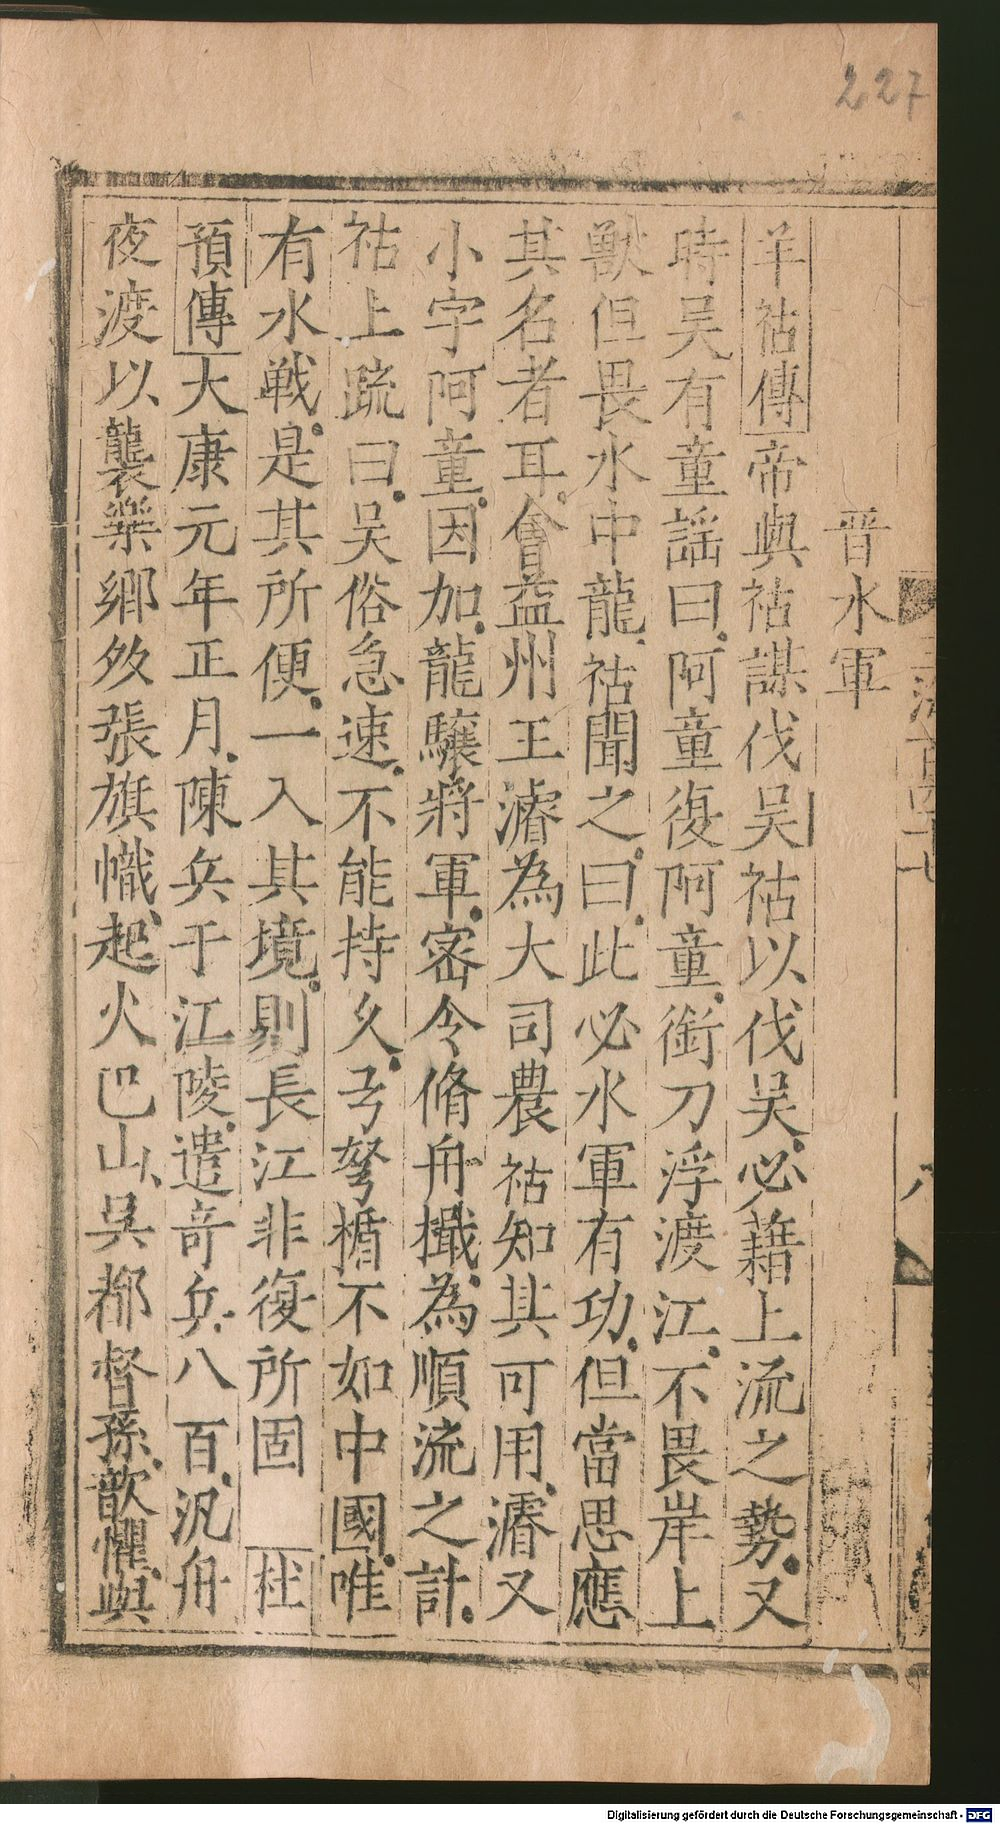 227
晋水軍
羊祜傳帝與祜謀伐吴祜以伐吴必藉上流之勢又
時吴有童謡曰阿童復阿童銜刀浮渡江不畏岸上
獸但畏水中龍祜聞之曰此必水軍有功但當思應
其名者耳會益州王濬為大司農祜知其可用濬又
小字阿童因加龍驤將軍密令脩舟檝為順流之計
祜上疏曰吴俗急速不能持久弓弩楯不如中國唯
有水戦是其所便一入其境則長江非復所固 杜
預傳大康元年正月陳兵于江陵遣奇兵八百汎舟
夜渡以襲樂鄉多張旗幟起火巴山吳都督孫歆懼與
Digitalisierung gefördert durch die Deutsche Forschungsgemeinschaft - DFG